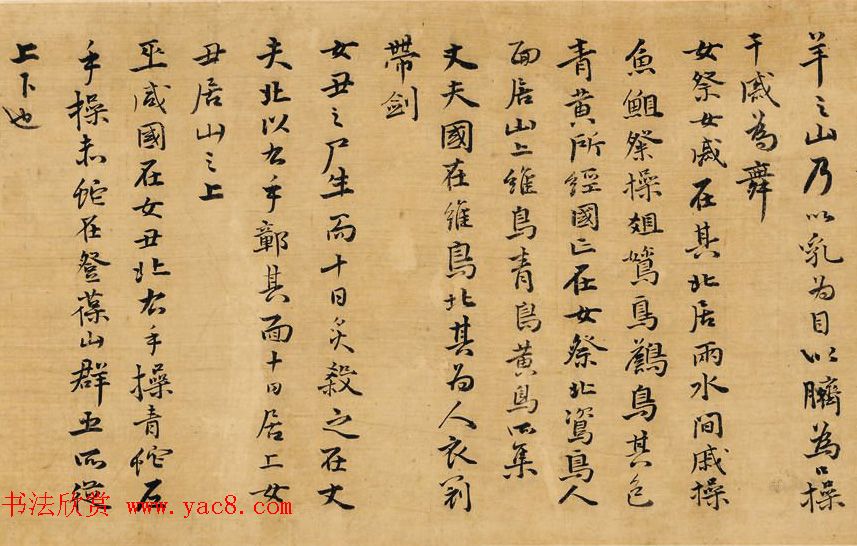 羊之山乃以乳为目以臍為口操
干戚為舞
女祭女戚在其北居兩水間戚操
魚䱉祭操俎鳥鳥其色
青黄所經國亡在女祭北鳥人
面居山上維鳥青鳥黄鳥所集
丈夫國在維鳥北其为人衣冠
帶劍
女丑之尸生而十日炙殺之在丈
夫北以右手鄣其面十日居上女
丑居山之上
巫咸國在女丑北右手操青蛇左
手操赤蛇在登葆山群巫所從
上下也
书法欣赏 www.yac8.com